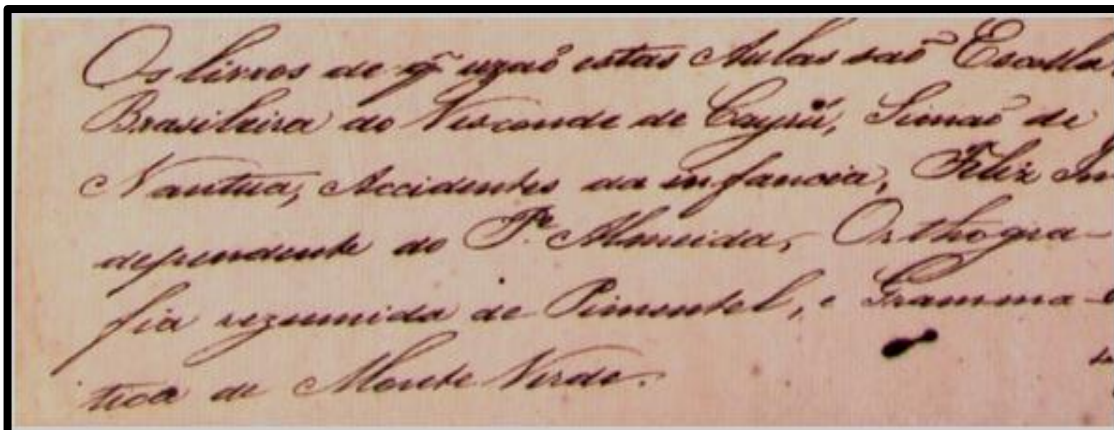 Os livros de q̃ uzaõ estas Aulas saõ Escolla
Brasileira do Visconde de Cayrú, Simaõ de
Nantua, Accidentes da infancia, Feliz In
dependente do P.e Almeida, Orthogra-
fia rezumida de Pimentel, e Gramma-
tica de Monte Verde.